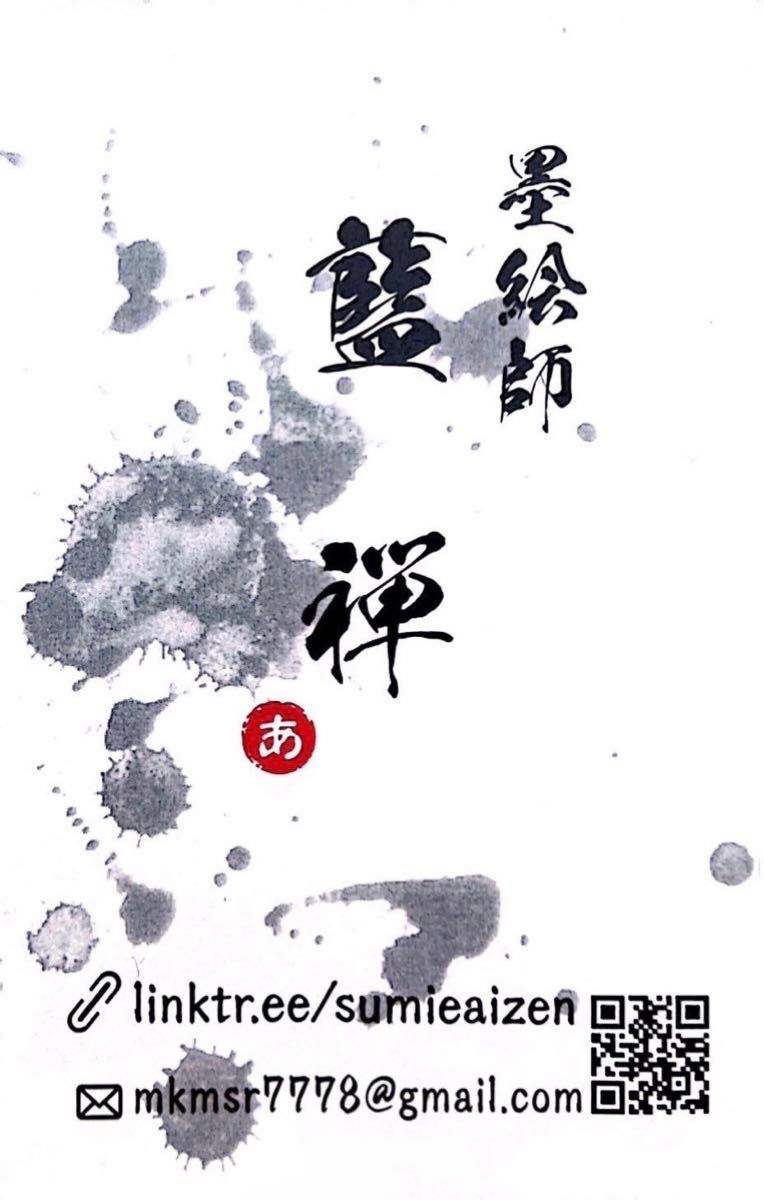 墨絵師
藍禅
あ
linktr.ee/sumieaizen
mkmsr7778@gmail.com